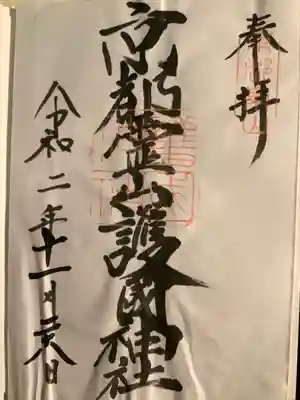 奉拝
京都霊山護國神社
令和二年十一月二八日